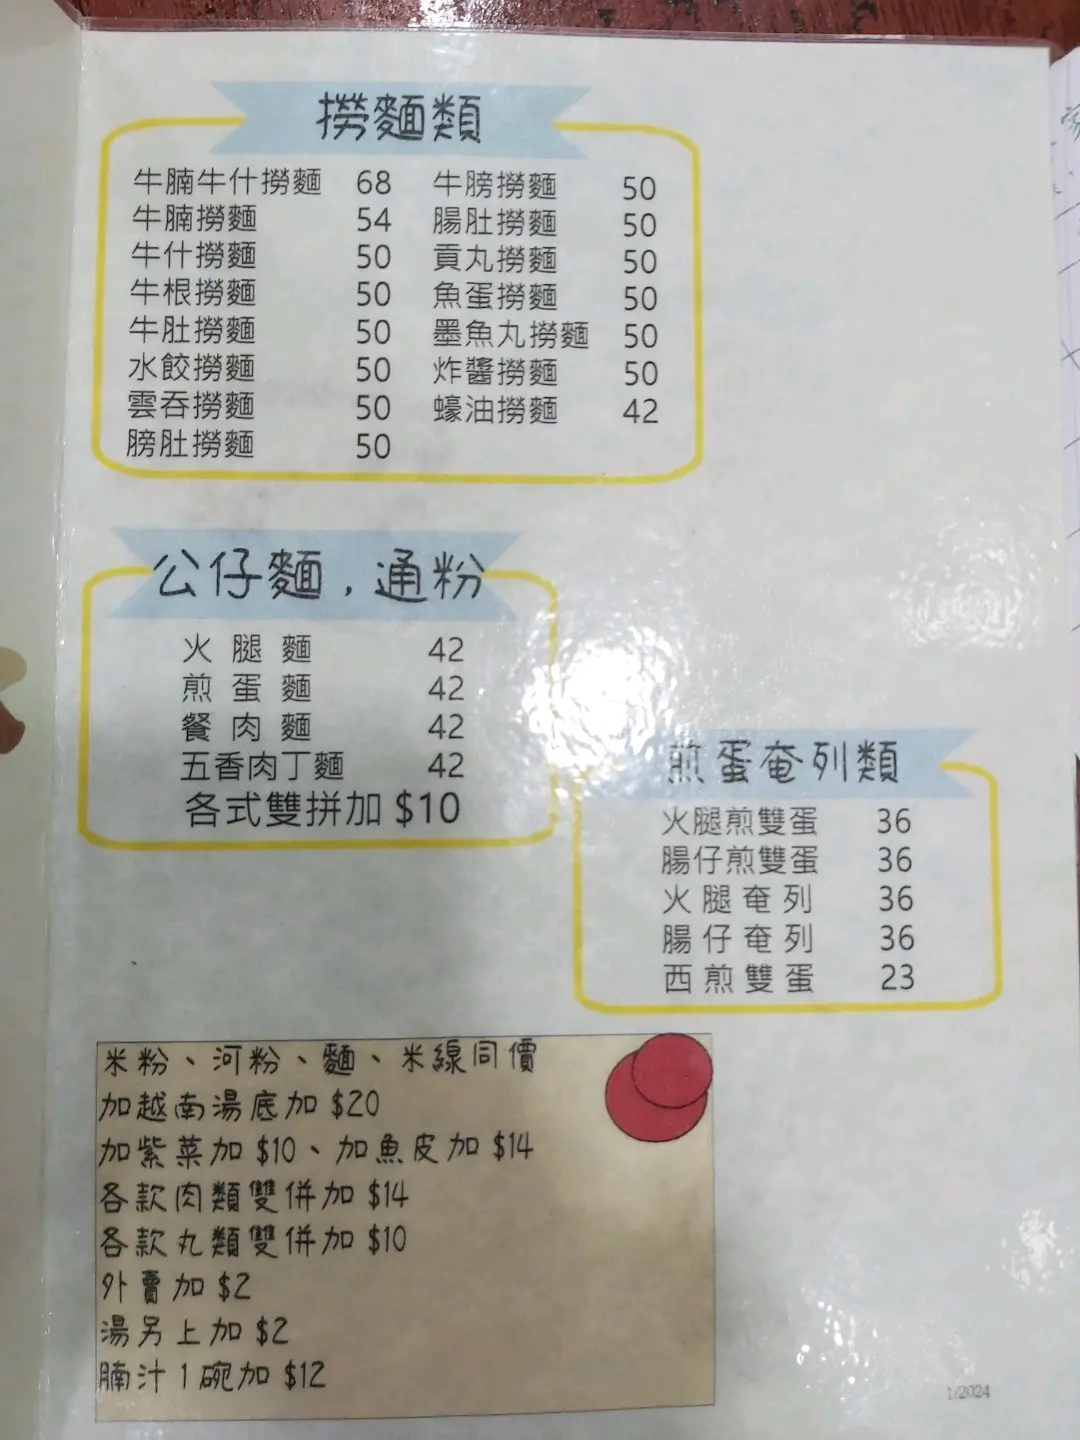 撈麵類
牛腩牛什撈麵 68
牛腩撈麵 54
牛什撈麵 50
牛根撈麵 50
牛肚撈麵 50
水餃撈麵 50
雲吞撈麵 50
膀肚撈麵 50
牛膀撈麵 50
腸肚撈麵 50
貢丸撈麵 50
魚蛋撈麵 50
墨魚丸撈麵 50
炸醬撈麵 50
蠔油撈麵 42
公仔麵，通粉
火腿麵 42
煎蛋麵 42
餐肉麵 42
五香肉丁麵 42
各式雙拼加 $10
煎蛋奄列類
火腿煎雙蛋 36
腸仔煎雙蛋 36
火腿奄列 36
腸仔奄列 36
西煎雙蛋 23
米粉、河粉、麵、米線同價
加越南湯底加 $20
加紫菜加 $10、加魚皮加 $14
各款肉類雙併加 $14
各款丸類雙併加 $10
外賣加 $2
湯另上加 $2
腩汁1碗加 $12
1/2024